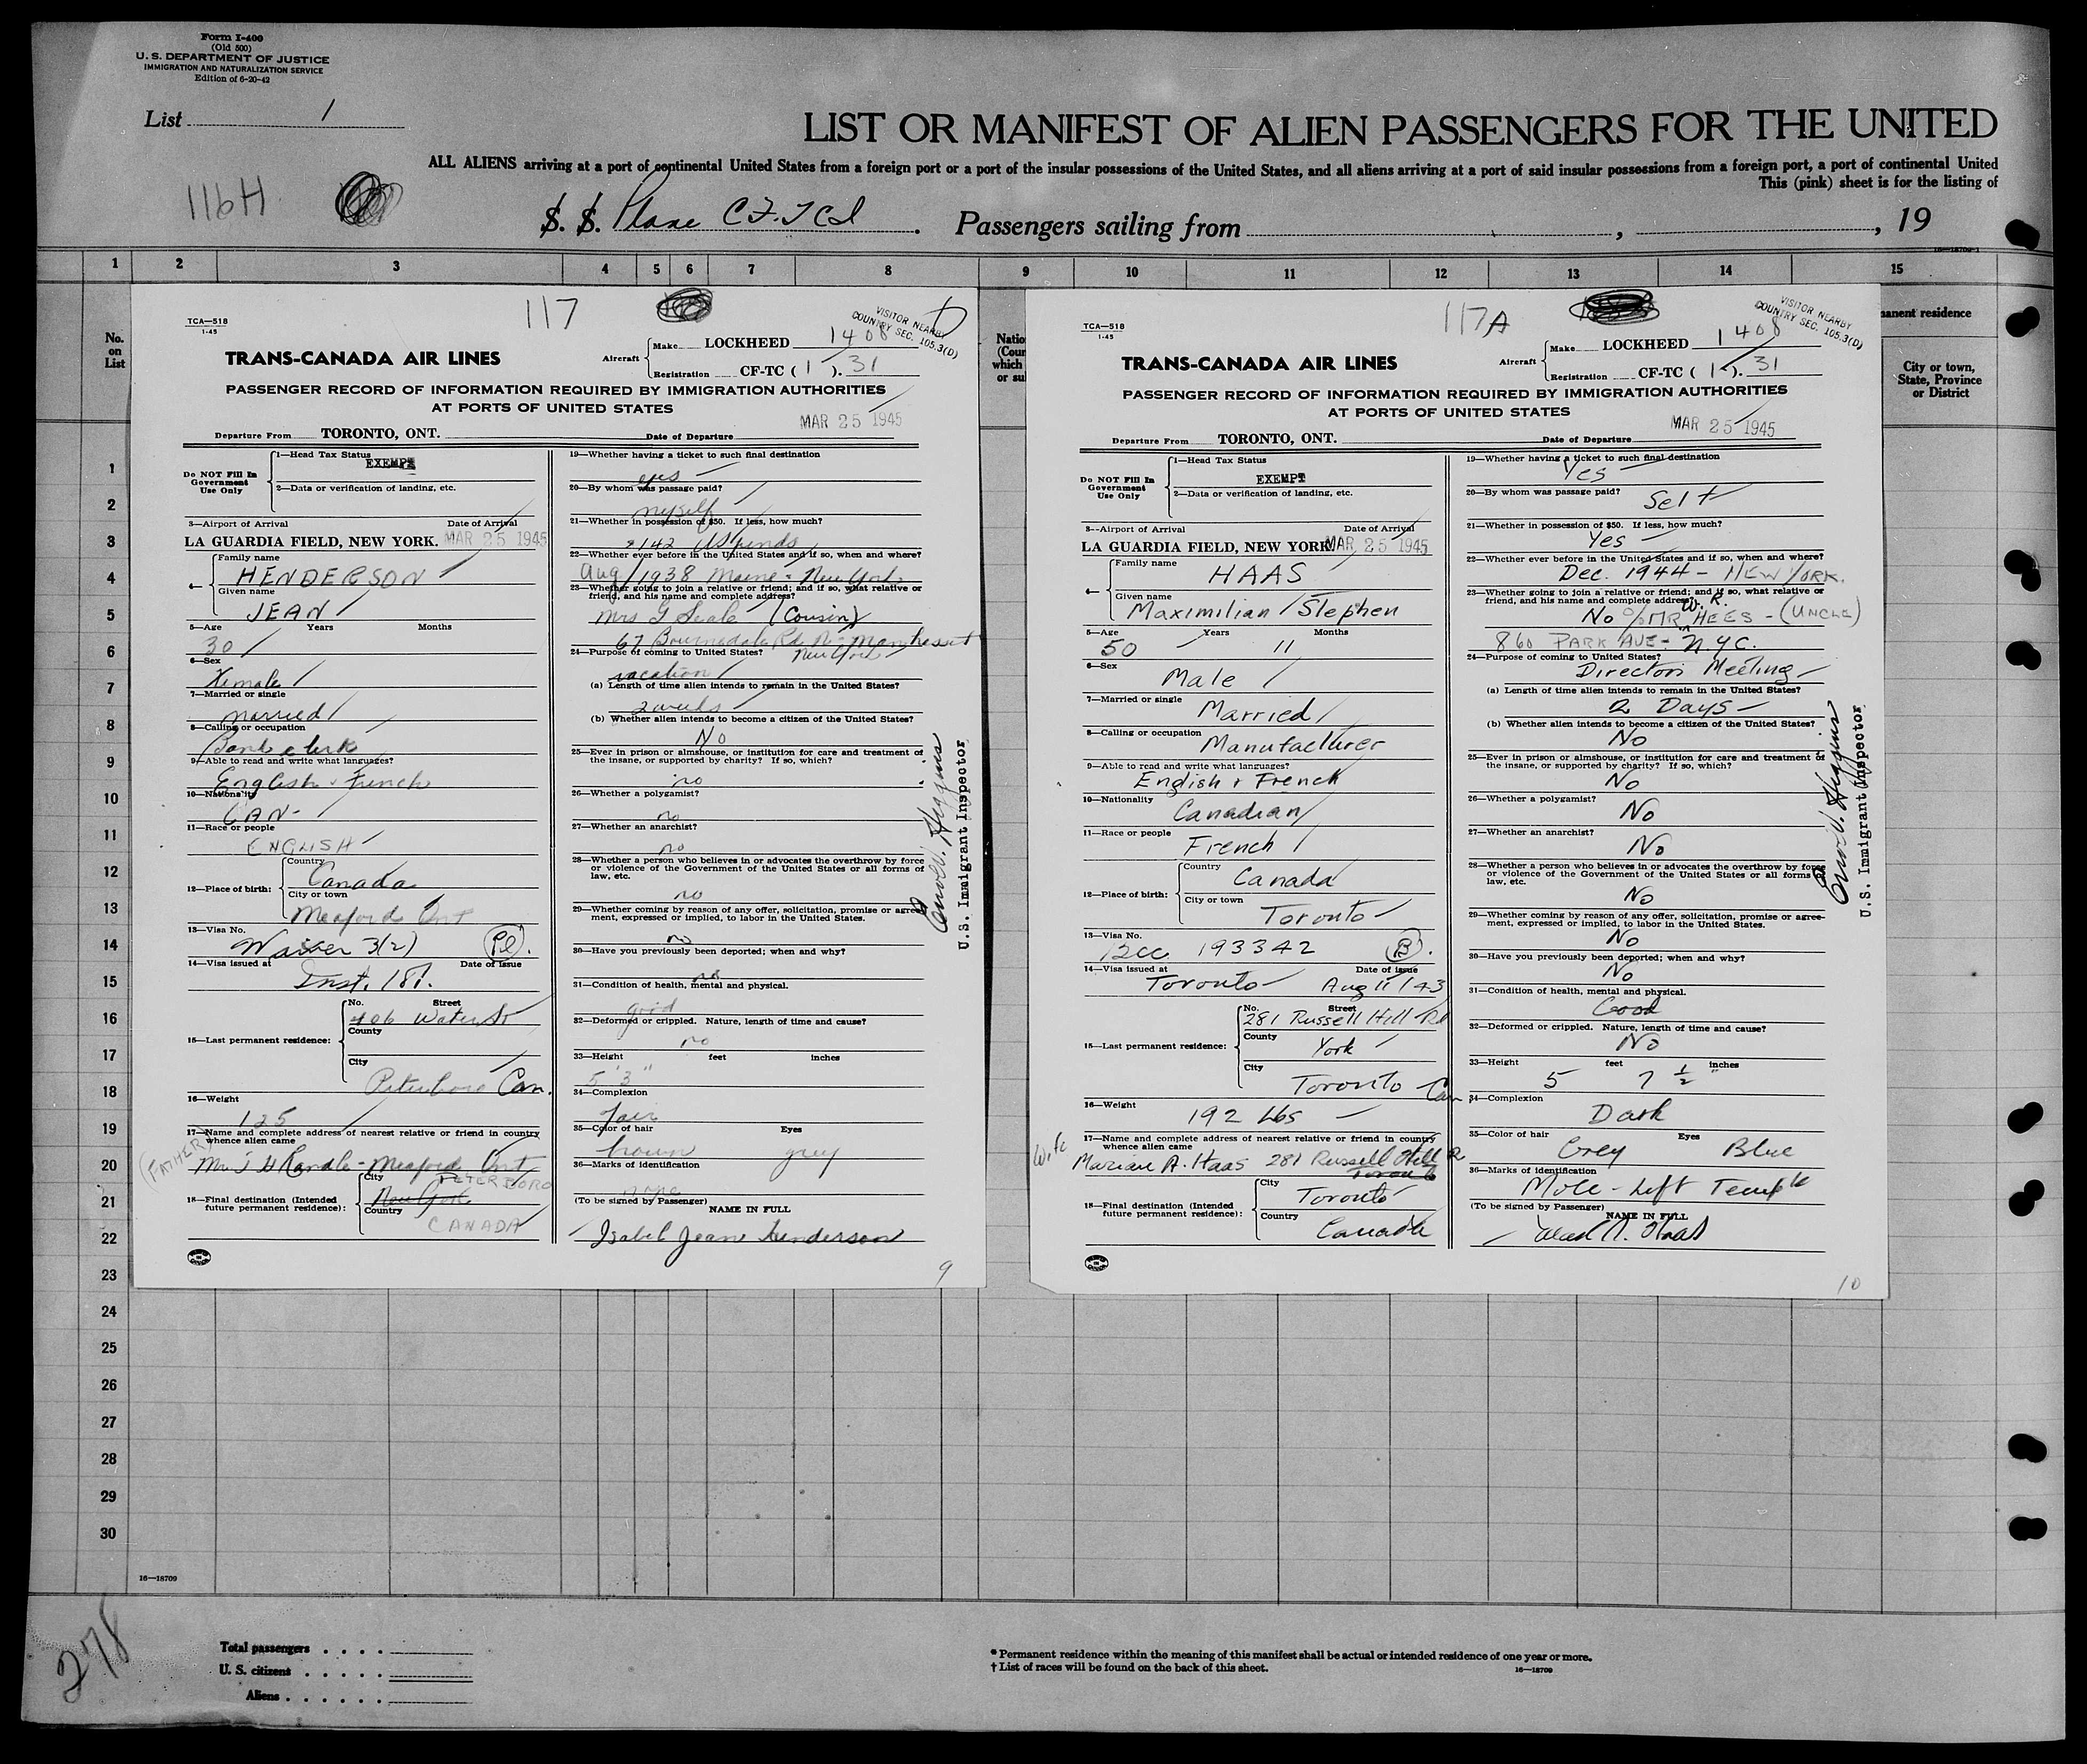 Form I-400
(Old 500)
U. S. DEPARTMENT OF JUSTICE
IMMIGRATION AND NATURALIZATION SERVICE
Edition of 6-20-42
List 1
LIST OR MANIFEST OF ALIEN PASSENGERS FOR THE UNITED
ALL ALIENS arriving at a port of continental United States from a foreign port or a port of the insular possessions of the United States, and all aliens arriving at a port of said insular possessions from a foreign port, a port of continental United
This (pink) sheet is for the listing of
116H
S. S. Plane CF.TCI. Passengers sailing from , , 19
16—18709-1
1 2 3 4 5 6 7 8 9 10 11 12 13 14 15
No.
on
List
117
TCA—518
1-45
VISITOR NEARBY
COUNTRY SEC. 105.3(D)
TRANS-CANADA AIR LINES
Aircraft
Make LOCKHEED 1408
Registration CF-TC ( I ). 31
PASSENGER RECORD OF INFORMATION REQUIRED BY IMMIGRATION AUTHORITIES
AT PORTS OF UNITED STATES
MAR 25 1945
Departure From TORONTO, ONT. Date of Departure
Do NOT Fill In
Government
Use Only
1—Head Tax Status
EXEMPT
2—Data or verification of landing, etc.
3—Airport of Arrival Date of Arrival
LA GUARDIA FIELD, NEW YORK. MAR 25 1945
4—
Family name
HENDERSON
Given name
JEAN
5—Age Years Months
30
6—Sex
Female
7—Married or single
married
8—Calling or occupation
Bank clerk
9—Able to read and write what languages?
English & French
10—Nationality
CAN-
11—Race or people
ENGLISH
12—Place of birth:
Country
Canada
City or town
Meaford Ont
13—Visa No.
Waiver 3(2)
14—Visa issued at Date of Issue
Inst. 181.
15—Last permanent residence:
No. Street
406 Water St
County
City
Peterboro Can.
16—Weight
125
17—Name and complete address of nearest relative or friend in country
whence alien came
(FATHER)
Meaford Ont
18—Final destination (Intended
future permanent residence):
City PETERBORO
New York
Country
CANADA
19—Whether having a ticket to such final destination
yes
20—By whom was passage paid?
myself
21—Whether in possession of $50. If less, how much?
$142 US funds
22—Whether ever before in the United States and if so, when and where?
Aug / 1938 Maine & New York
23—Whether going to join a relative or friend; and if so, what relative or
friend, and his name and complete address?
Mrs G (Cousin)
67 Rd. Manhasset
New York
24—Purpose of coming to United States?
vacation
(a) Length of time alien intends to remain in the United States?
2 weeks
(b) Whether alien intends to become a citizen of the United States?
No
25—Ever in prison or almshouse, or institution for care and treatment of
the insane, or supported by charity? If so, which?
no
26—Whether a polygamist?
no
27—Whether an anarchist?
no
28—Whether a person who believes in or advocates the overthrow by force
or violence of the Government of the United States or all forms of
law, etc.
no
29—Whether coming by reason of any offer, solicitation, promise or agree-
ment, expressed or implied, to labor in the United States.
no
30—Have you previously been deported; when and why?
no
31—Condition of health, mental and physical.
good
32—Deformed or crippled. Nature, length of time and cause?
no
33—Height feet inches
5' 3"
34—Complexion
fair
35—Color of hair Eyes
brown grey
36—Marks of identification
none
(To be signed by Passenger)
NAME IN FULL
Isabel Jean Henderson
U.S. Immigrant Inspector
9
Natio
(Coun
which
or su
117A
TCA—518
1-45
VISITOR NEARBY
COUNTRY SEC. 105.3(D)
TRANS-CANADA AIR LINES
Aircraft
Make LOCKHEED 1408
Registration CF-TC ( I ). 31
PASSENGER RECORD OF INFORMATION REQUIRED BY IMMIGRATION AUTHORITIES
AT PORTS OF UNITED STATES
MAR 25 1945
Departure From TORONTO, ONT. Date of Departure
Do NOT Fill In
Government
Use Only
1—Head Tax Status
EXEMPT
2—Data or verification of landing, etc.
3—Airport of Arrival Date of Arrival
LA GUARDIA FIELD, NEW YORK. MAR 25 1945
4—
Family name
HAAS
Given name
Maximilian Stephen
5—Age Years Months
50 11
6—Sex
Male
7—Married or single
Married
8—Calling or occupation
Manufacturer
9—Able to read and write what languages?
English & French
10—Nationality
Canadian
11—Race or people
French
12—Place of birth:
Country
Canada
City or town
Toronto
13—Visa No.
Bcc 193342
14—Visa issued at Date of issue
Toronto Aug 11/43
15—Last permanent residence:
No. Street
281 Russell Hill Rd
County
York
City
Toronto Can
16—Weight
192 Lbs
17—Name and complete address of nearest relative or friend in country
whence alien came
Wife
Marian A. Haas 281 Russell Hill R
Toronto
18—Final destination (Intended
future permanent residence):
City
Toronto
Country
Canada
19—Whether having a ticket to such final destination
Yes
20—By whom was passage paid?
Self
21—Whether in possession of $50. If less, how much?
Yes
22—Whether ever before in the United States and if so, when and where?
Dec. 1944 - NEW YORK.
23—Whether going to join a relative or friend; and if so, what relative or
friend, and his name and complete address?
No c/o MR W. R. HEES - (UNCLE)
860 PARK AVE - N.Y.C.
24—Purpose of coming to United States?
Directors Meeting
(a) Length of time alien intends to remain in the United States?
2 Days
(b) Whether alien intends to become a citizen of the United States?
No
25—Ever in prison or almshouse, or institution for care and treatment of
the insane, or supported by charity? If so, which?
No
26—Whether a polygamist?
No
27—Whether an anarchist?
No
28—Whether a person who believes in or advocates the overthrow by force
or violence of the Government of the United States or all forms of
law, etc.
No
29—Whether coming by reason of any offer, solicitation, promise or agree-
ment, expressed or implied, to labor in the United States.
No
30—Have you previously been deported; when and why?
No
31—Condition of health, mental and physical.
Good
32—Deformed or crippled. Nature, length of time and cause?
No
33—Height feet inches
5 7 1/2"
34—Complexion
Dark
35—Color of hair Eyes
Grey Blue
36—Marks of identification
Mole - Left Temple
(To be signed by Passenger)
NAME IN FULL
Haas
U.S. Immigrant Inspector
10
manent residence
City or town,
State, Province
or District
1
2
3
4
5
6
7
8
9
10
11
12
13
14
15
16
17
18
19
20
21
22
23
24
25
26
27
28
29
30
16—18709
278
Total passengers
U. S. citizens
Aliens
* Permanent residence within the meaning of this manifest shall be actual or intended residence of one year or more.
† List of races will be found on the back of this sheet.
16—18709